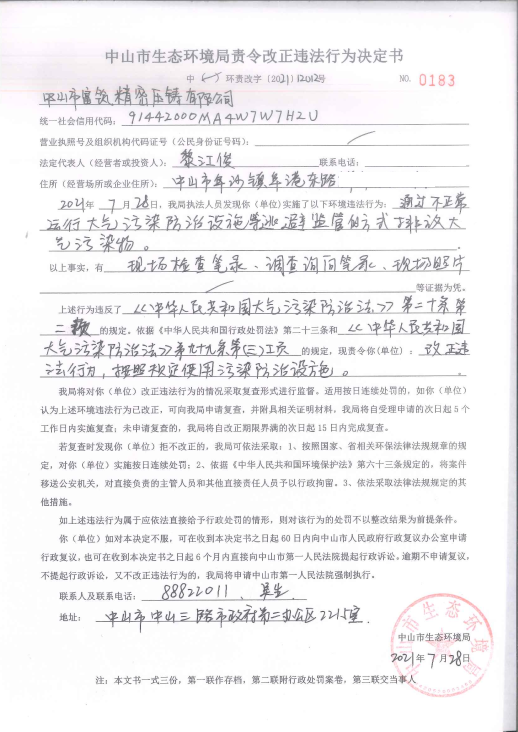 中山市生态环境局责令改正违法行为决定书
中 环责改字〔2021〕12012号 NO. 0183
中山市富筑精密压铸有限公司
统一社会信用代码：91442000MA4W7W7H2U
营业执照号及组织机构代码证号（公民身份证号码）：
法定代表人（经营者或投资人）：黎江俊 联系电话：
住所（经营场所或企业住所）：中山市阜沙镇阜港东路
2021年7月28日，我局执法人员发现你（单位）实施了以下环境违法行为：通过不正常
运行大气污染防治设施等逃避监管的方式排放大
气污染物。
以上事实，有 现场检查笔录、调查询问笔录、现场照片
等证据为凭。
上述行为违反了《中华人民共和国大气污染防治法》第二十条第
二款 的规定。依据《中华人民共和国行政处罚法》第二十三条和《中华人民共和国
大气污染防治法》第九十九条第(三)项 的规定，现责令你(单位)：改正违
法行为，按照规定使用污染防治设施。
我局将对你（单位）改正违法行为的情况采取复查形式进行监督。适用按日连续处罚的，如你（单位）
认为上述环境违法行为已改正，可向我局申请复查，并附具相关证明材料，我局将自受理申请的次日起5个
工作日内实施复查；未申请复查的，我局将自改正期限界满的次日起15日内完成复查。
若复查时发现你（单位）拒不改正的，我局可依法采取：1、按照国家、省相关环保法律法规规章的规
定，对你（单位）实施按日连续处罚；2、依据《中华人民共和国环境保护法》第六十三条规定的，将案件
移送公安机关，对直接负责的主管人员和其他直接责任人员予以行政拘留。3、依法采取法律法规规定的其
他措施。
如上述违法行为属于应依法直接给予行政处罚的情形，则对该行为的处罚不以整改结果为前提条件。
你（单位）如对本决定不服，可在收到本决定书之日起60日内向中山市人民政府行政复议办公室申请
行政复议，也可在收到本决定书之日起6个月内直接向中山市第一人民法院提起行政诉讼。逾期不申请复议，
不提起行政诉讼，又不改正违法行为的，我局将申请中山市第一人民法院强制执行。
联系人及联系电话：88822011、吴生
地址：中山市中山三路市政府第二办公区2215室
中山市生态环境局
2021年7月28日
注：本文书一式三份，第一联作存档，第二联附行政处罚案卷，第三联交当事人